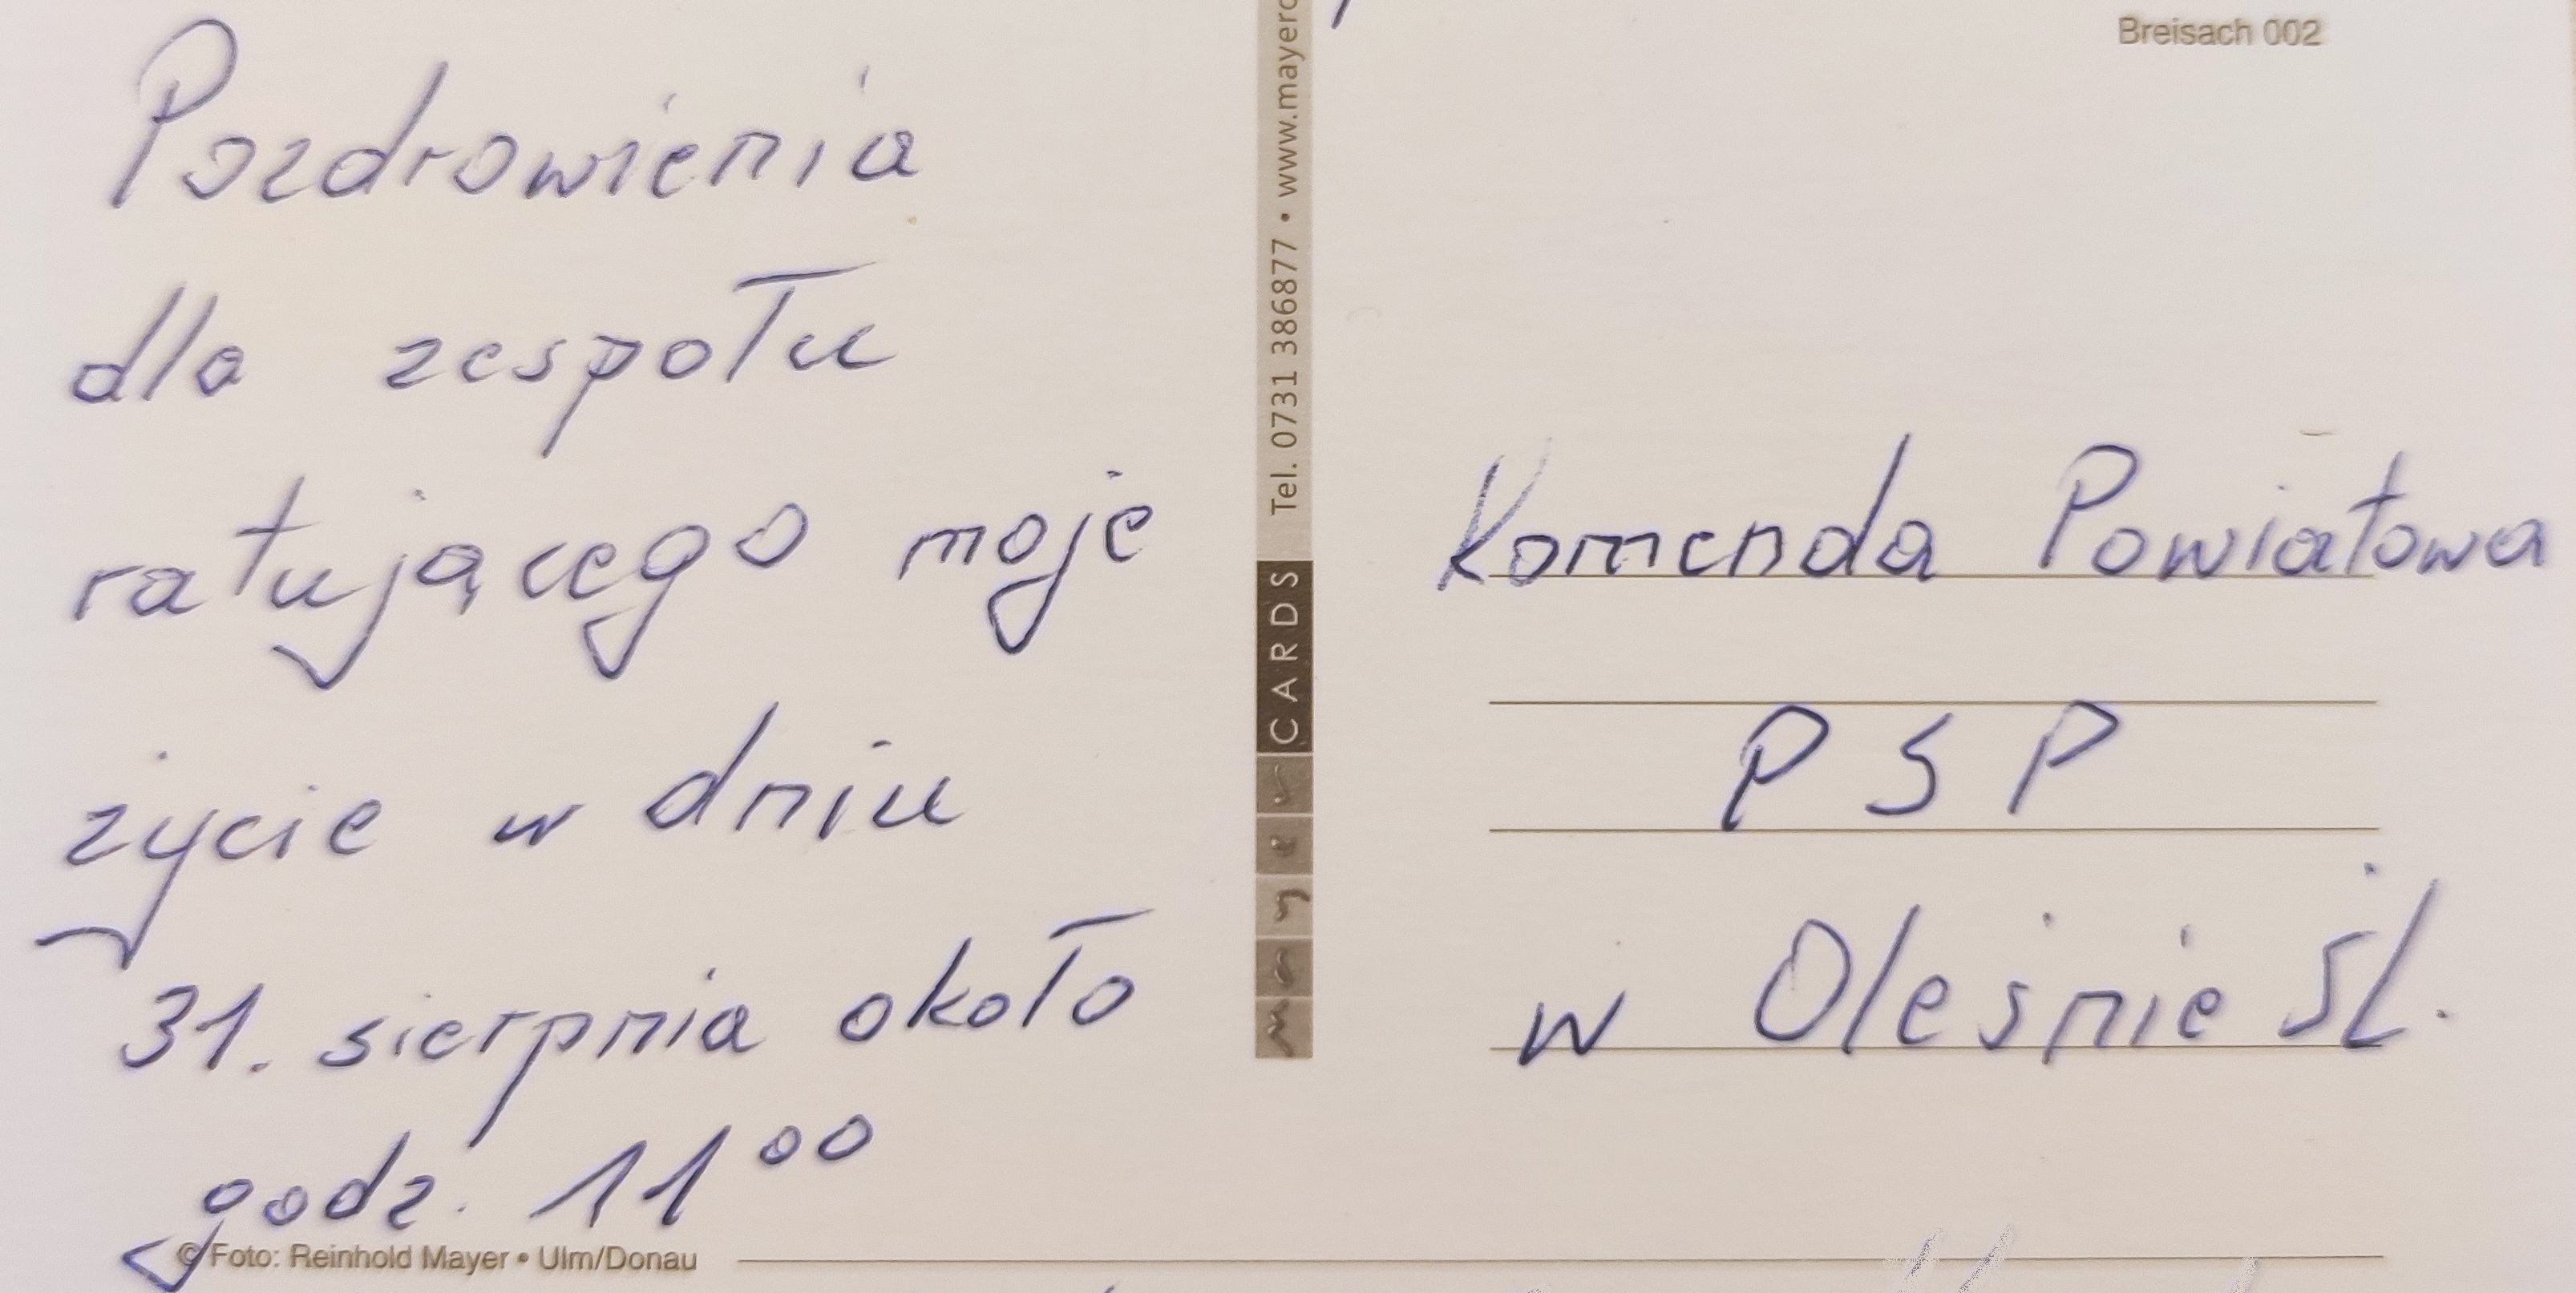 Pozdrowienia
dla zespołu
ratującego moje
życie w dniu
31. sierpnia około
godz. 11⁰⁰
© Foto: Reinhold Mayer • Ulm/Donau
mayer CARDS Tel. 0731 386877 • www.mayerc
Breisach 002
Komenda Powiatowa
PSP
w Oleśnie Śl.